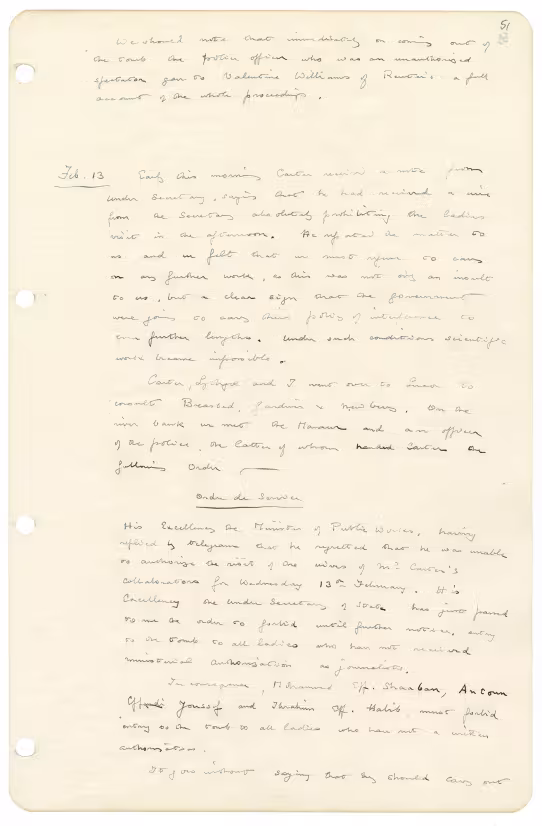 51
We should note that immediately on coming out of
the tomb the police officer who was an unauthorised
spectator gave to Valentine Williams of Reuter's a full
account of the whole proceedings.
Feb. 13 Early this morning Carter received a note from
under Secretary, saying that he had received a wire
from the Secretary absolutely prohibiting the ladies
visit in the afternoon. He reported the matter to
us and we felt that we must refuse to carry
on any further work, as this was not only an insult
to us, but a clear sign that the government
were going to carry their policy of interference to
even further lengths. Under such conditions scientific
work became impossible.
Carter, Lythgoe and I went over to Luxor to
consult Breasted, Gardiner & Newberry. On the
river bank we met the Mamur and an officer
of the police, the latter of whom handed Carter the
following Order
Ordre de Service
His Excellency the Minister of Public Works, having
replied by telegram that he regretted that he was unable
to authorise the visit of the wives of Mr. Carter's
collaborators for Wednesday 13th February. His
Excellency the Under Secretary of State has just passed
to me the order to forbid until further notice, entry
to the tomb to all ladies who have not received
ministerial authorisation as journalists.
In consequence, Mohamed Eff. Shaaban, Antoun
Effendi Youssef and Ibrahim Eff. Habib must forbid
entry to the tomb to all ladies who have not a written
authorisation.
It goes without saying that they should carry out